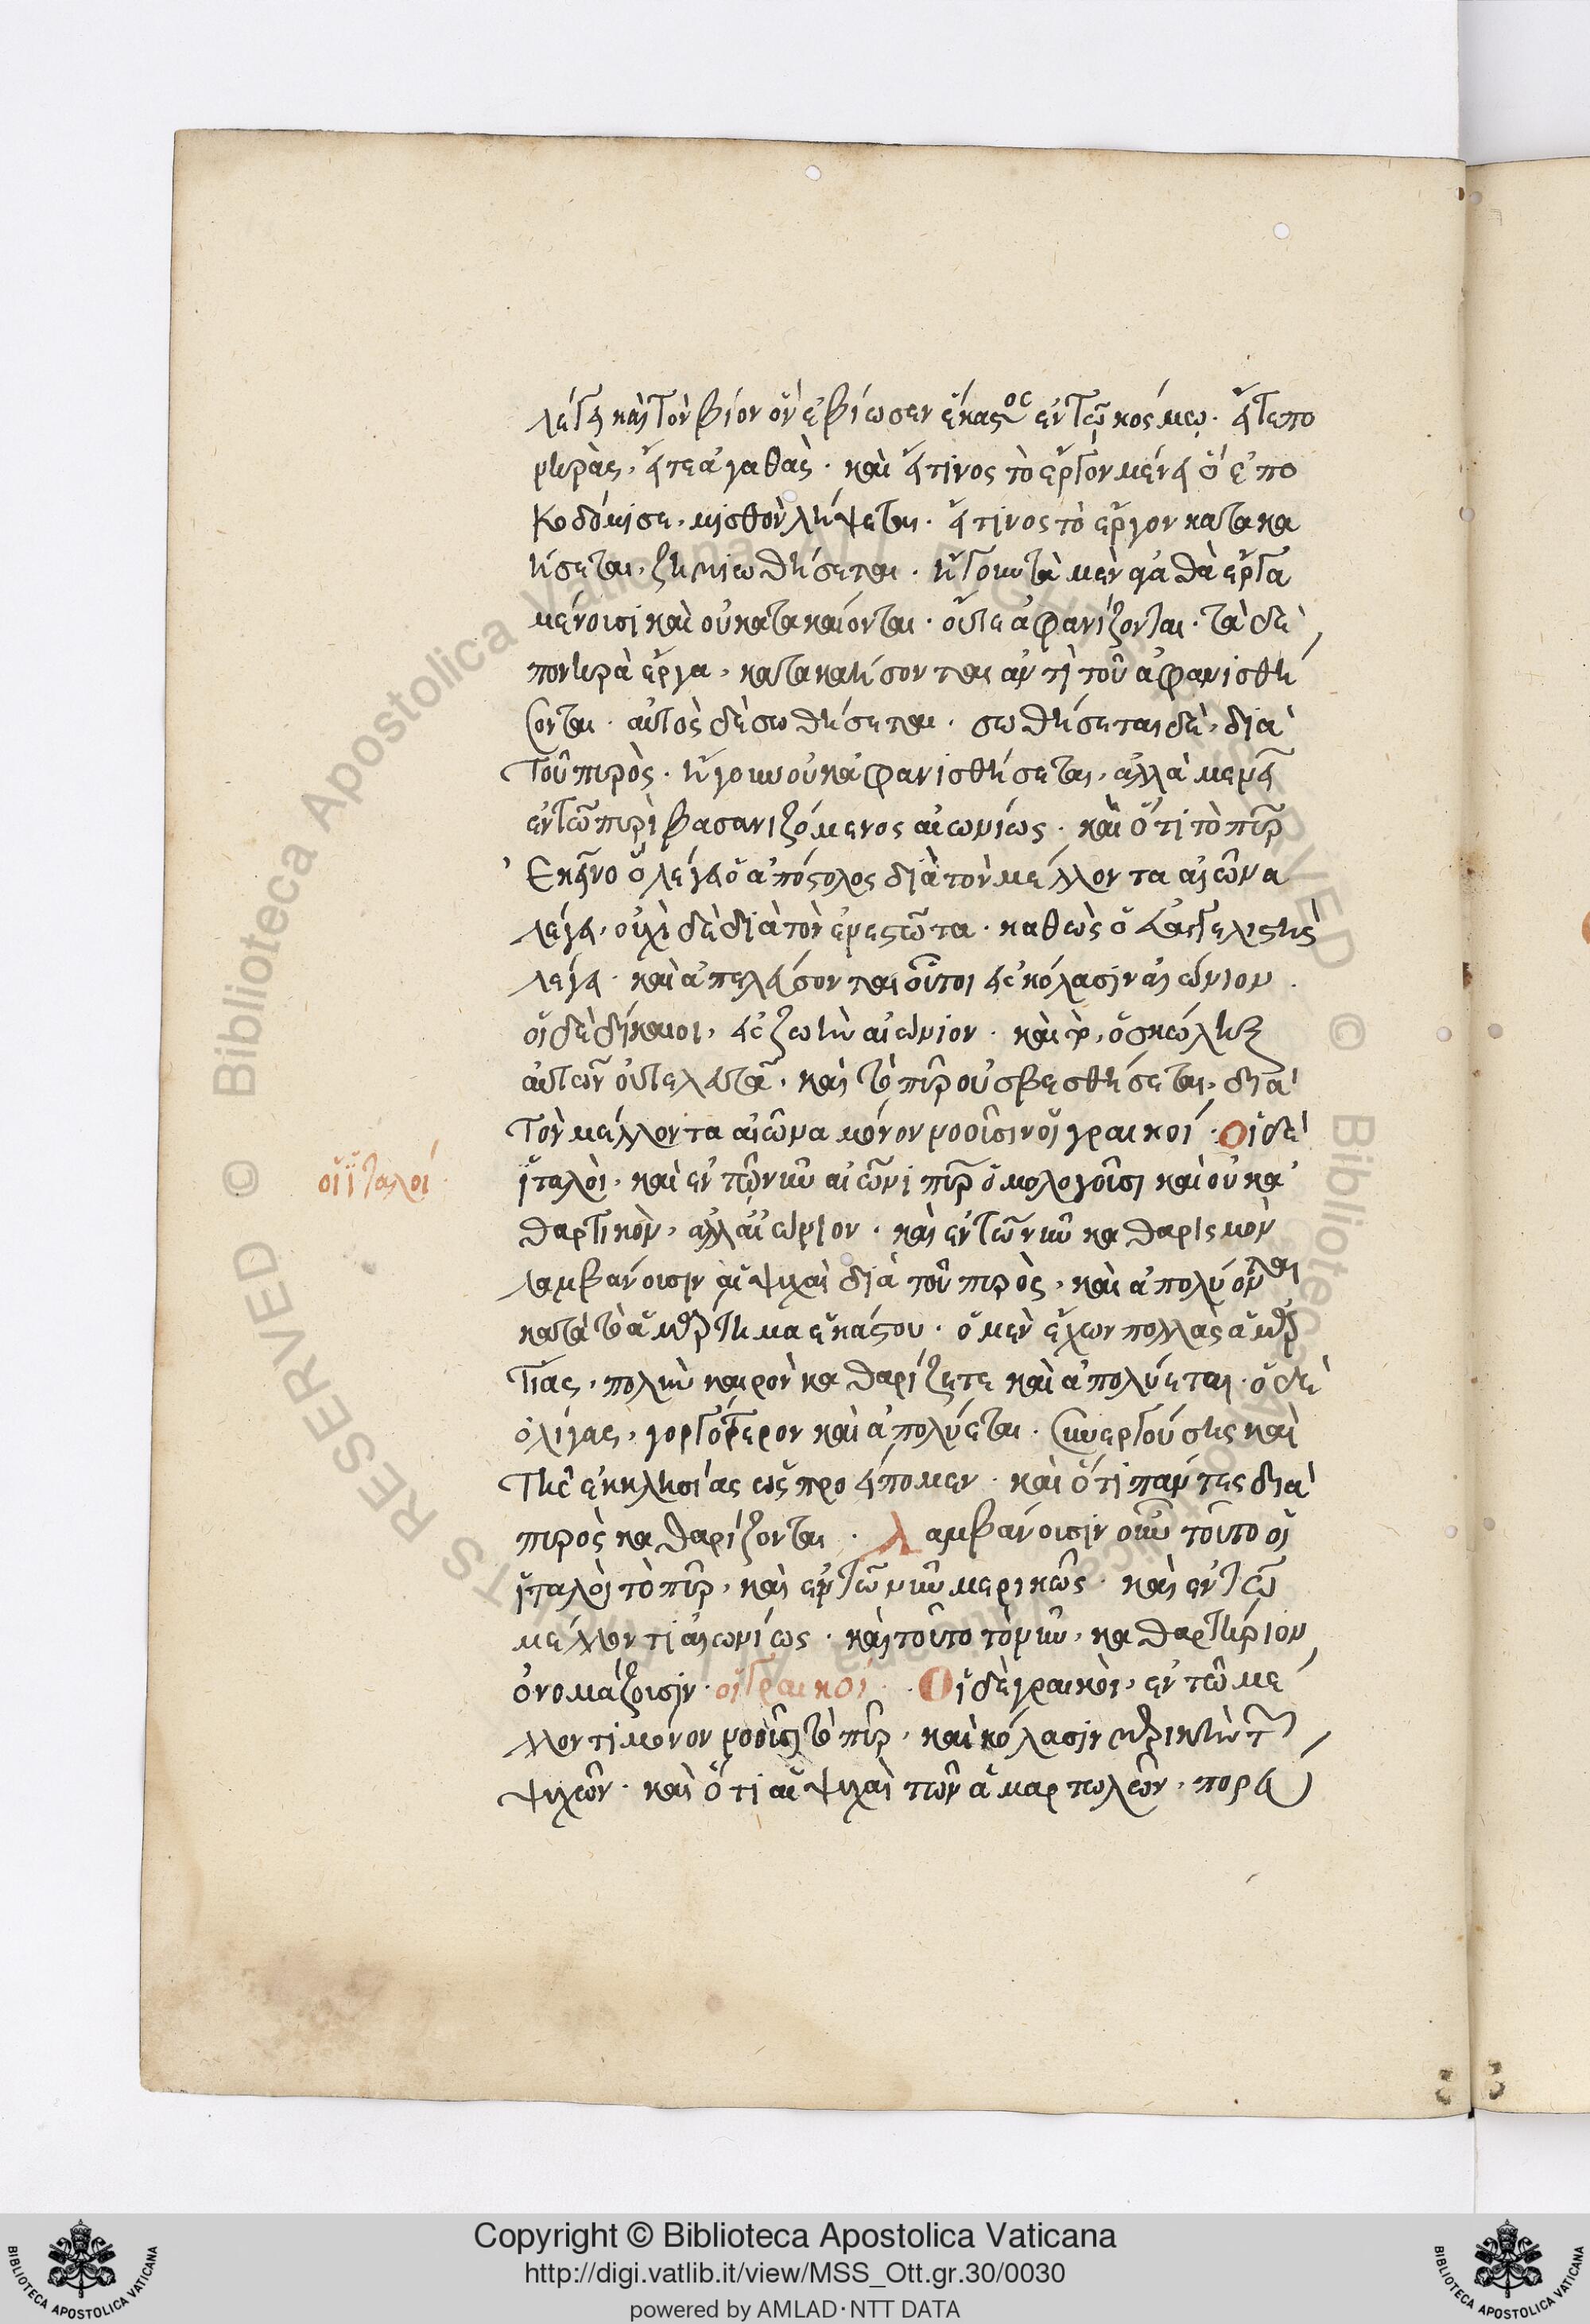 λέγει καὶ τὸν βίον ὃν ἐβίωσεν ἕκαστος ἐν τῷ κόσμω. εἴτε πο
νηρὰς, εἴτε ἀγαθὰς. καὶ εἴ τινος τὸ ἔργον μένει ὃ ἐπο
κοδόμισε, μισθὸν λήψεται. εἴ τινος τὸ ἔργον κατακα
ήσεται, ζημιωθήσεται. ἤγουν τὰ μὲν ἀγαθὰ ἔργα
μένουσι καὶ οὐ κατακαίονται. οὔτε ἀφανίζονται. τὰ δὲ
πονηρὰ ἔργα, κατακαήσονται ἀντὶ τοῦ ἀφανισθή
σονται. αὐτὸς δὲ σωθήσεται. σωθήσεται δὲ, διὰ
τοῦ πυρὸς. ἤγουν οὐκ ἀφανισθήσεται, ἀλλὰ μενεῖ
ἐν τῶ πυρὶ βασανιζόμενος αἰωνίως. καὶ ὅτι τὸ πῦρ
Ἐκεῖνο ὃ λέγει ὁ ἀπόστολος διὰ τὸν μέλλοντα αἰῶνα
λέγει, οὐχὶ δὲ διὰ τὸν ἐνεστῶτα. καθὼς ὁ εὐαγγελιστὴς
λέγει. καὶ ἀπελεύσονται οὗτοι εἰς κόλασιν αἰώνιον.
οἱ δὲ δίκαιοι, εἰς ζωὴν αἰώνιον. καὶ τὸ, ὁ σκώληξ
αὐτῶν οὐ τελευτᾶ, καὶ τὸ πῦρ οὐ σβεσθήσεται, διὰ
τὸν μέλλοντα αἰῶνα μόνον νοοῦσιν οἱ γραικοί. Οἱ δὲ
οἱ ἰταλοί
ἰταλοὶ, καὶ ἐν τῶ νῦν αἰῶνι πῦρ ὁμολογοῦσι καὶ οὐ κα
θαρτικὸν, ἀλλ' αἰώνιον. καὶ ἐν τῶ νῦν καθαρισμὸν
λαμβάνουσιν αἱ ψυχαὶ διὰ τοῦ πυρὸς, καὶ ἀπολύονται
κατὰ τὸ ἁμάρτημα ἑκάστου. ὁ μὲν ἔχων πολλὰς ἁμαρ
τίας, πολὺν καιρὸν καθαρίζετε καὶ ἀπολύεται. ὁ δὲ
ὀλίγας, γοργότερον καὶ ἀπολύεται. συνεργούσης καὶ
τῆς ἐκκλησίας ὡς προείπομεν. καὶ ὅτι πάντες διὰ
πυρὸς καθαρίζονται. λαμβάνουσιν οὖν τοῦτο οἱ
ἰταλοὶ τὸ πῦρ, καὶ ἐν τῶ νῦν μερικῶς. καὶ ἐν τῶ
μέλλοντι αἰωνίως. καὶ τοῦτο τὸ νῦν, καθαρτήριον
ὀνομάζουσιν. οἱ Γραικοί. Οἱ δὲ γραικοὶ, ἐν τῶ μέ
λλοντι μόνον νοοῦσι τὸ πῦρ, καὶ κόλασιν μερικὴν τῶν
ψυχῶν. καὶ ὅτι αἱ ψυχαὶ τῶν ἁμαρτωλῶν, πορεύ
Copyright © Biblioteca Apostolica Vaticana
http://digi.vatlib.it/view/MSS_Ott.gr.30/0030
powered by AMLAD·NTT DATA